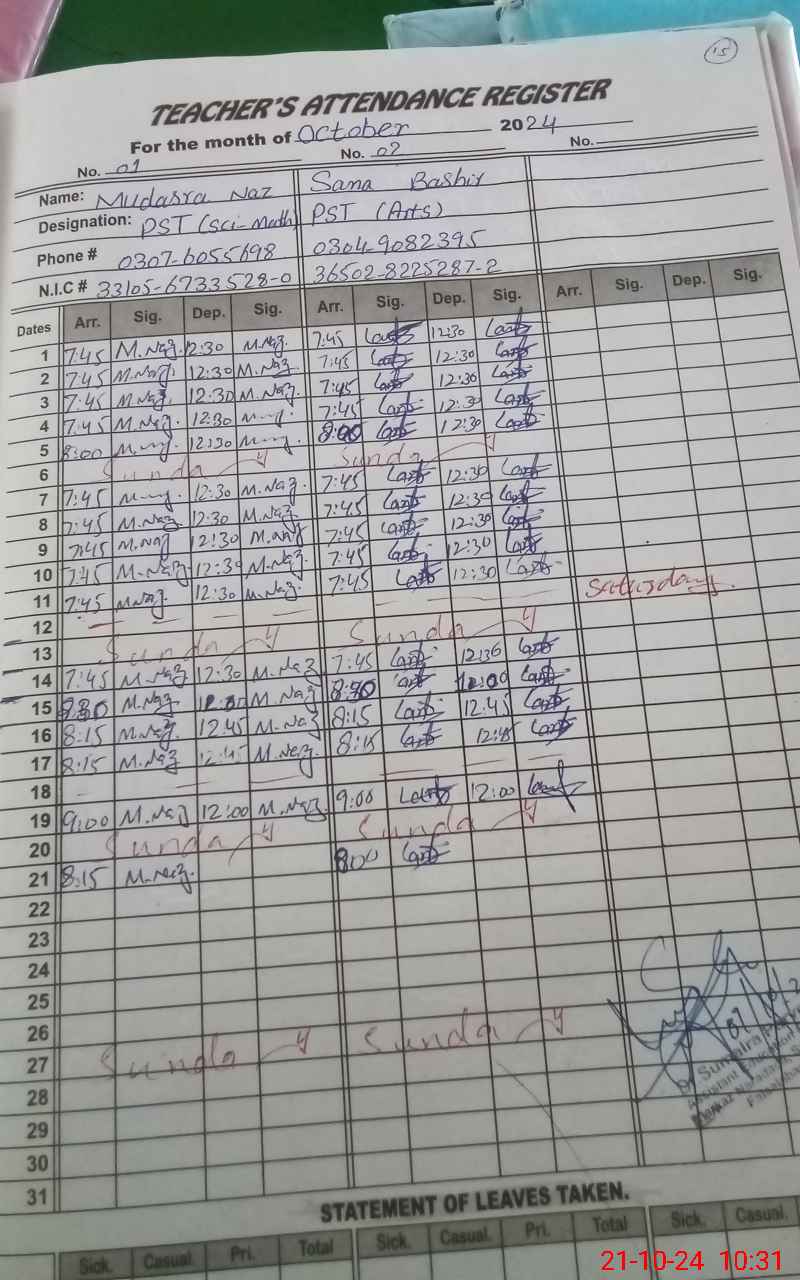 15
TEACHER'S ATTENDANCE REGISTER
For the month of October 2024
No. 01 No. 02 No.
Name: Mudasra Naz Sana Bashir
Designation: PST (Sci-Math) PST (Arts)
Phone # 0307-6055698 0304-9082395
N.I.C # 33105-6733528-0 36502-8225287-2
Dates Arr. Sig. Dep. Sig. Arr. Sig. Dep. Sig. Arr. Sig. Dep. Sig.
1 7:45 M.Naz. 12:30 M.Naz. 7:45 12:30
2 7:45 M.Naz. 12:30 M.Naz 7:45 12:30
3 7:45 M.Naz. 12:30 M.Naz. 7:45 12:30
4 7:45 M.Naz. 12:30 7:45 12:30
5 8:00 12:30 8:00 12:30
6 Sunday Sunday
7 7:45 12:30 M.Naz. 7:45 12:30
8 7:45 M.Naz 12:30 M.Naz. 7:45 12:30
9 7:45 M.Naz 12:30 M.Naz 7:45 12:30
10 7:45 M.Naz 12:30 M.Naz. 7:45 12:30
11 7:45 M.Naz. 12:30 M.Naz. 7:45 12:30
12 Saturday.
13 Sunday Sunday
14 7:45 M.Naz 12:30 M.Naz 7:45 12:30
15 M.Naz M.Naz
16 8:15 M.Naz 12:45 M.Naz 8:15 12:45
17 8:15 M.Naz 12:45 M.Naz. 8:15 12:45
18
19 9:00 M.Naz 12:00 M.Naz. 9:00 12:00
20 Sunday Sunday
21 8:15 M.Naz. 8:00
22
23
24
25
26
27 Sunday Sunday
28
29
30
31
STATEMENT OF LEAVES TAKEN.
Sick. Casual. Pri. Total Sick. Casual. Pri. Total Sick. Casual.
21-10-24 10:31